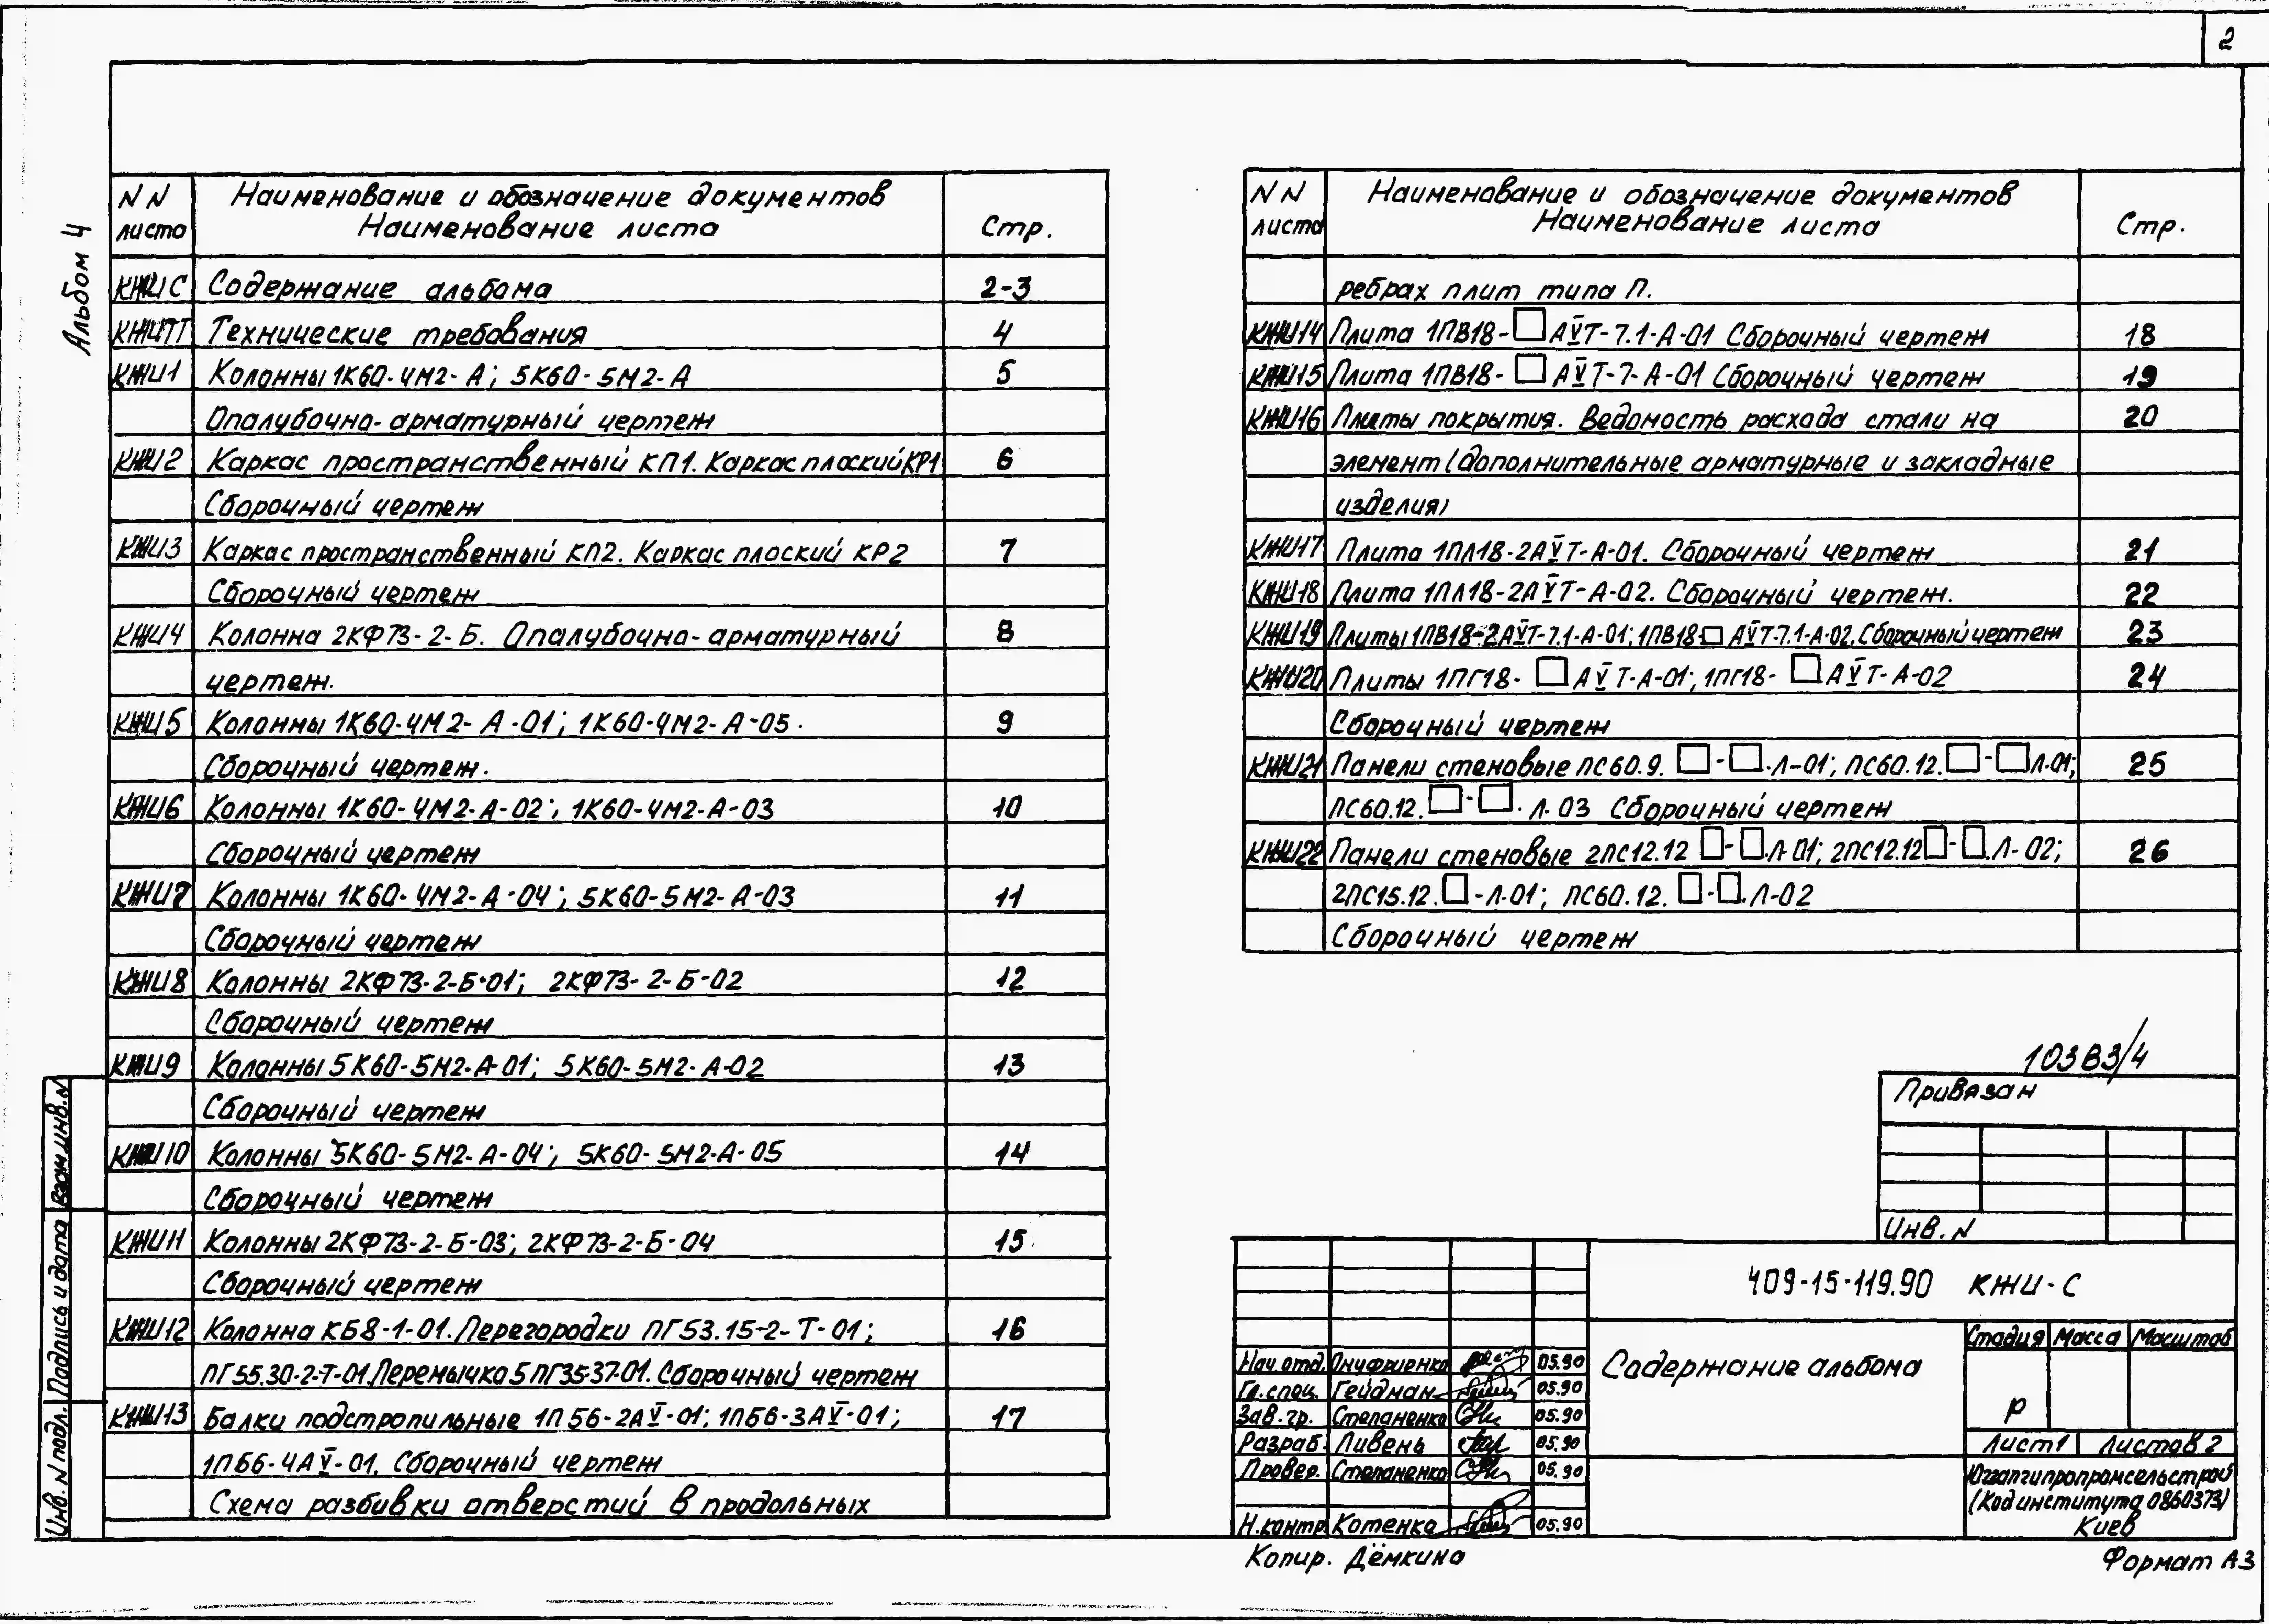 2
Альбом 4
NN листа Наименование и обозначение документов Наименование листа Стр.
КЖИС Содержание альбома 2-3
КЖИТТ Технические требования 4
КЖИ1 Колонны 1К60-4М2-А; 5К60-5М2-А 5
Опалубочно-арматурный чертеж
КЖИ2 Каркас пространственный КП1. Каркас плоский КР1 6
Сборочный чертеж
КЖИ3 Каркас пространственный КП2. Каркас плоский КР2 7
Сборочный чертеж
КЖИ4 Колонна 2КФ73-2-Б. Опалубочно-арматурный 8
чертеж.
КЖИ5 Колонны 1К60-4М2-А-01; 1К60-4М2-А-05. 9
Сборочный чертеж.
КЖИ6 Колонны 1К60-4М2-А-02; 1К60-4М2-А-03 10
Сборочный чертеж
КЖИ7 Колонны 1К60-4М2-А-04; 5К60-5М2-А-03 11
Сборочный чертеж
КЖИ8 Колонны 2КФ73-2-Б-01; 2КФ73-2-Б-02 12
Сборочный чертеж
КЖИ9 Колонны 5К60-5М2-А-01; 5К60-5М2-А-02 13
Сборочный чертеж
КЖИ10 Колонны 5К60-5М2-А-04; 5К60-5М2-А-05 14
Сборочный чертеж
КЖИ11 Колонны 2КФ73-2-Б-03; 2КФ73-2-Б-04 15
Сборочный чертеж
КЖИ12 Колонна КБ8-1-01. Перегородки ПГ53.15-2-Т-01; 16
ПГ55.30-2-Т-01. Перемычка 5ПГ35-37-01. Сборочный чертеж
КЖИ13 Балки подстропильные 1ПБ6-2АV-01; 1ПБ6-3АV-01; 17
1ПБ6-4АV-01. Сборочный чертеж
Схема разбивки отверстий в продольных
NN листа Наименование и обозначение документов Наименование листа Стр.
ребрах плит типа П.
КЖИ14 Плита 1ПВ18-□АVТ-7.1-А-01 Сборочный чертеж 18
КЖИ15 Плита 1ПВ18-□АVТ-7-А-01 Сборочный чертеж 19
КЖИ16 Плиты покрытия. Ведомость расхода стали на 20
элемент (дополнительные арматурные и закладные
изделия)
КЖИ17 Плита 1ПЛ18-2АVТ-А-01. Сборочный чертеж 21
КЖИ18 Плита 1ПЛ18-2АVТ-А-02. Сборочный чертеж. 22
КЖИ19 Плиты 1ПВ18-2АVТ-7.1-А-01; 1ПВ18-□АVТ-7.1-А-02. Сборочный чертеж 23
КЖИ20 Плиты 1ПГ18-□АVТ-А-01; 1ПГ18-□АVТ-А-02 24
Сборочный чертеж
КЖИ21 Панели стеновые ПС60.9.□-□.Л-01; ПС60.12.□-□Л.01; 25
ПС60.12.□-□.Л.03 Сборочный чертеж
КЖИ22 Панели стеновые 2ПС12.12□-□.Л-01; 2ПС12.12□-□.Л-02; 26
2ПС15.12.□-Л-01; ПС60.12.□-□.Л-02
Сборочный чертеж
10383/4
Привязан
Инв. N
409-15-119.90 КЖИ-С
Содержание альбома
Стадия Масса Масштаб
Р
Лист 1 Листов 2
Югзапгипропромсельстрой
(Код института 0860373)
Киев
Нач. отд. Онуфриенко 05.90
Гл. спец. Гейдман 05.90
Зав. гр. Степаненко 05.90
Разраб. Пивень 05.90
Провер. Степаненко 05.90
Н.контр. Котенко 05.90
Взам. инв. N
Подпись и дата
Инв. N подл.
Копир. Дёмкина
Формат А3